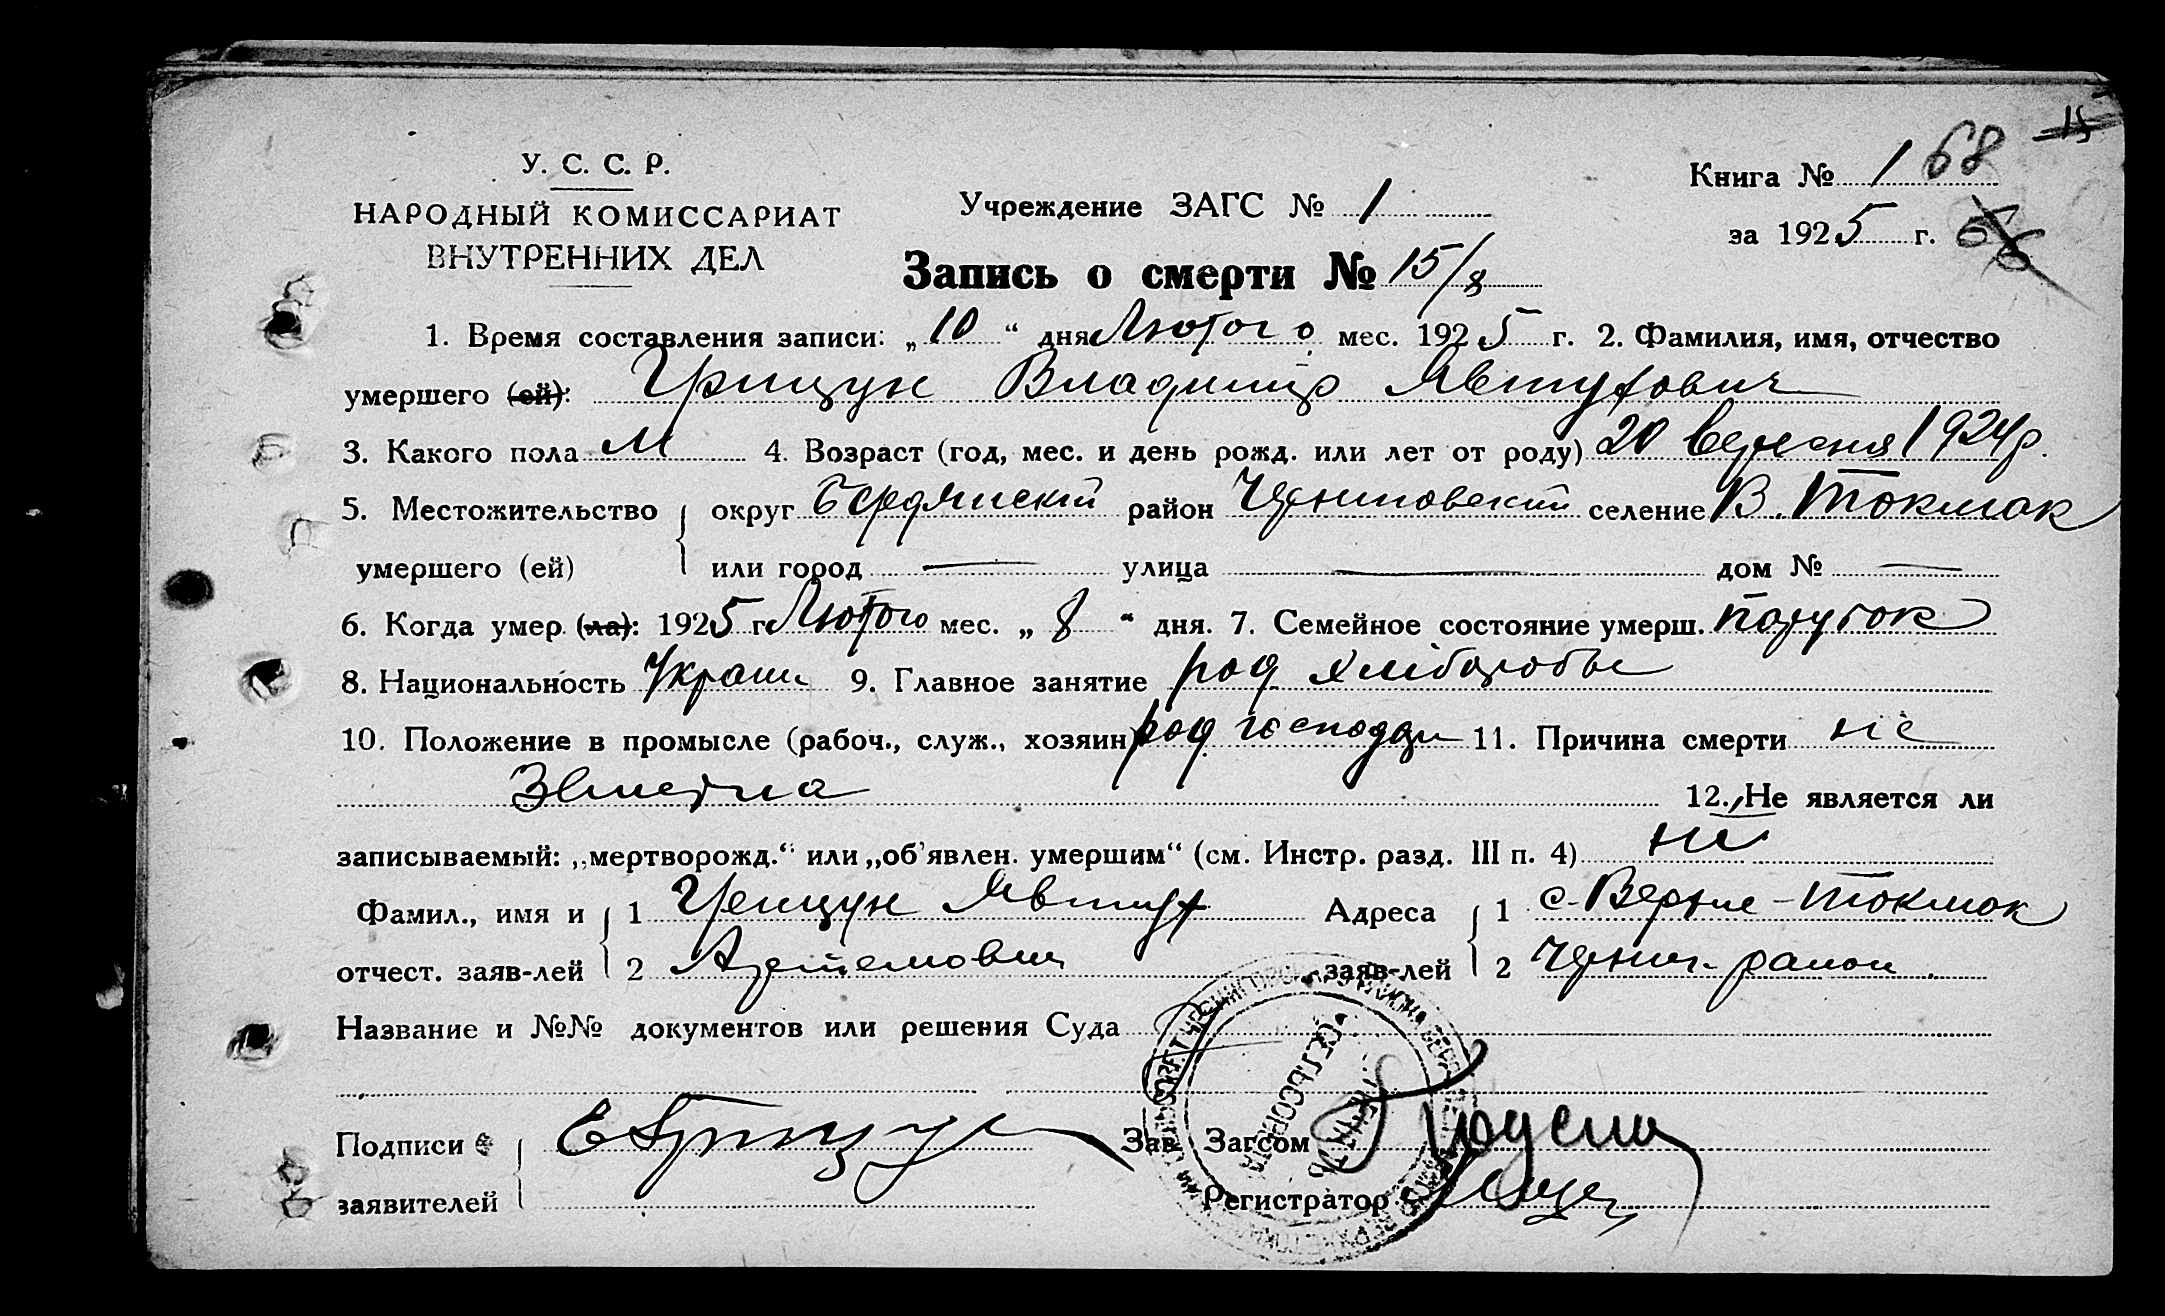 15
У. С. С. Р.
Книга № 1 68
НАРОДНЫЙ КОМИССАРИАТ
ВНУТРЕННИХ ДЕЛ
Учреждение ЗАГС № 1
за 1925 г.
Запись о смерти № 15/8
1. Время составления записи: „10“ дня Лютого мес. 1925 г. 2. Фамилия, имя, отчество
умершего (ей): Грищун Владимір Явтухович
3. Какого пола М 4. Возраст (год, мес. и день рожд. или лет от роду) 20 вересня 1924 р.
5. Местожительство округ Бердянскій район Черниговский селение В. Токмак
умершего (ей) или город — улица — дом № —
6. Когда умер (ла): 1925 г. Лютого мес. „8“ дня. 7. Семейное состояние умерш.
8. Национальность Украин 9. Главное занятие род хлібороби
10. Положение в промысле (рабоч., служ., хозяин) род 11. Причина смерти не
звистна 12. Не является ли
записываемый: „мертворожд.“ или „об'явлен. умершим“ (см. Инстр. разд. III п. 4) ни
Фамил., имя и 1 Грищун Явтух Адреса 1 с. Верхне-Токмак
отчест. заяв-лей 2 Артемович заяв-лей 2 Черниг. район
Название и №№ документов или решения Суда
Подписи Зав. Загсом
заявителей Регистратор